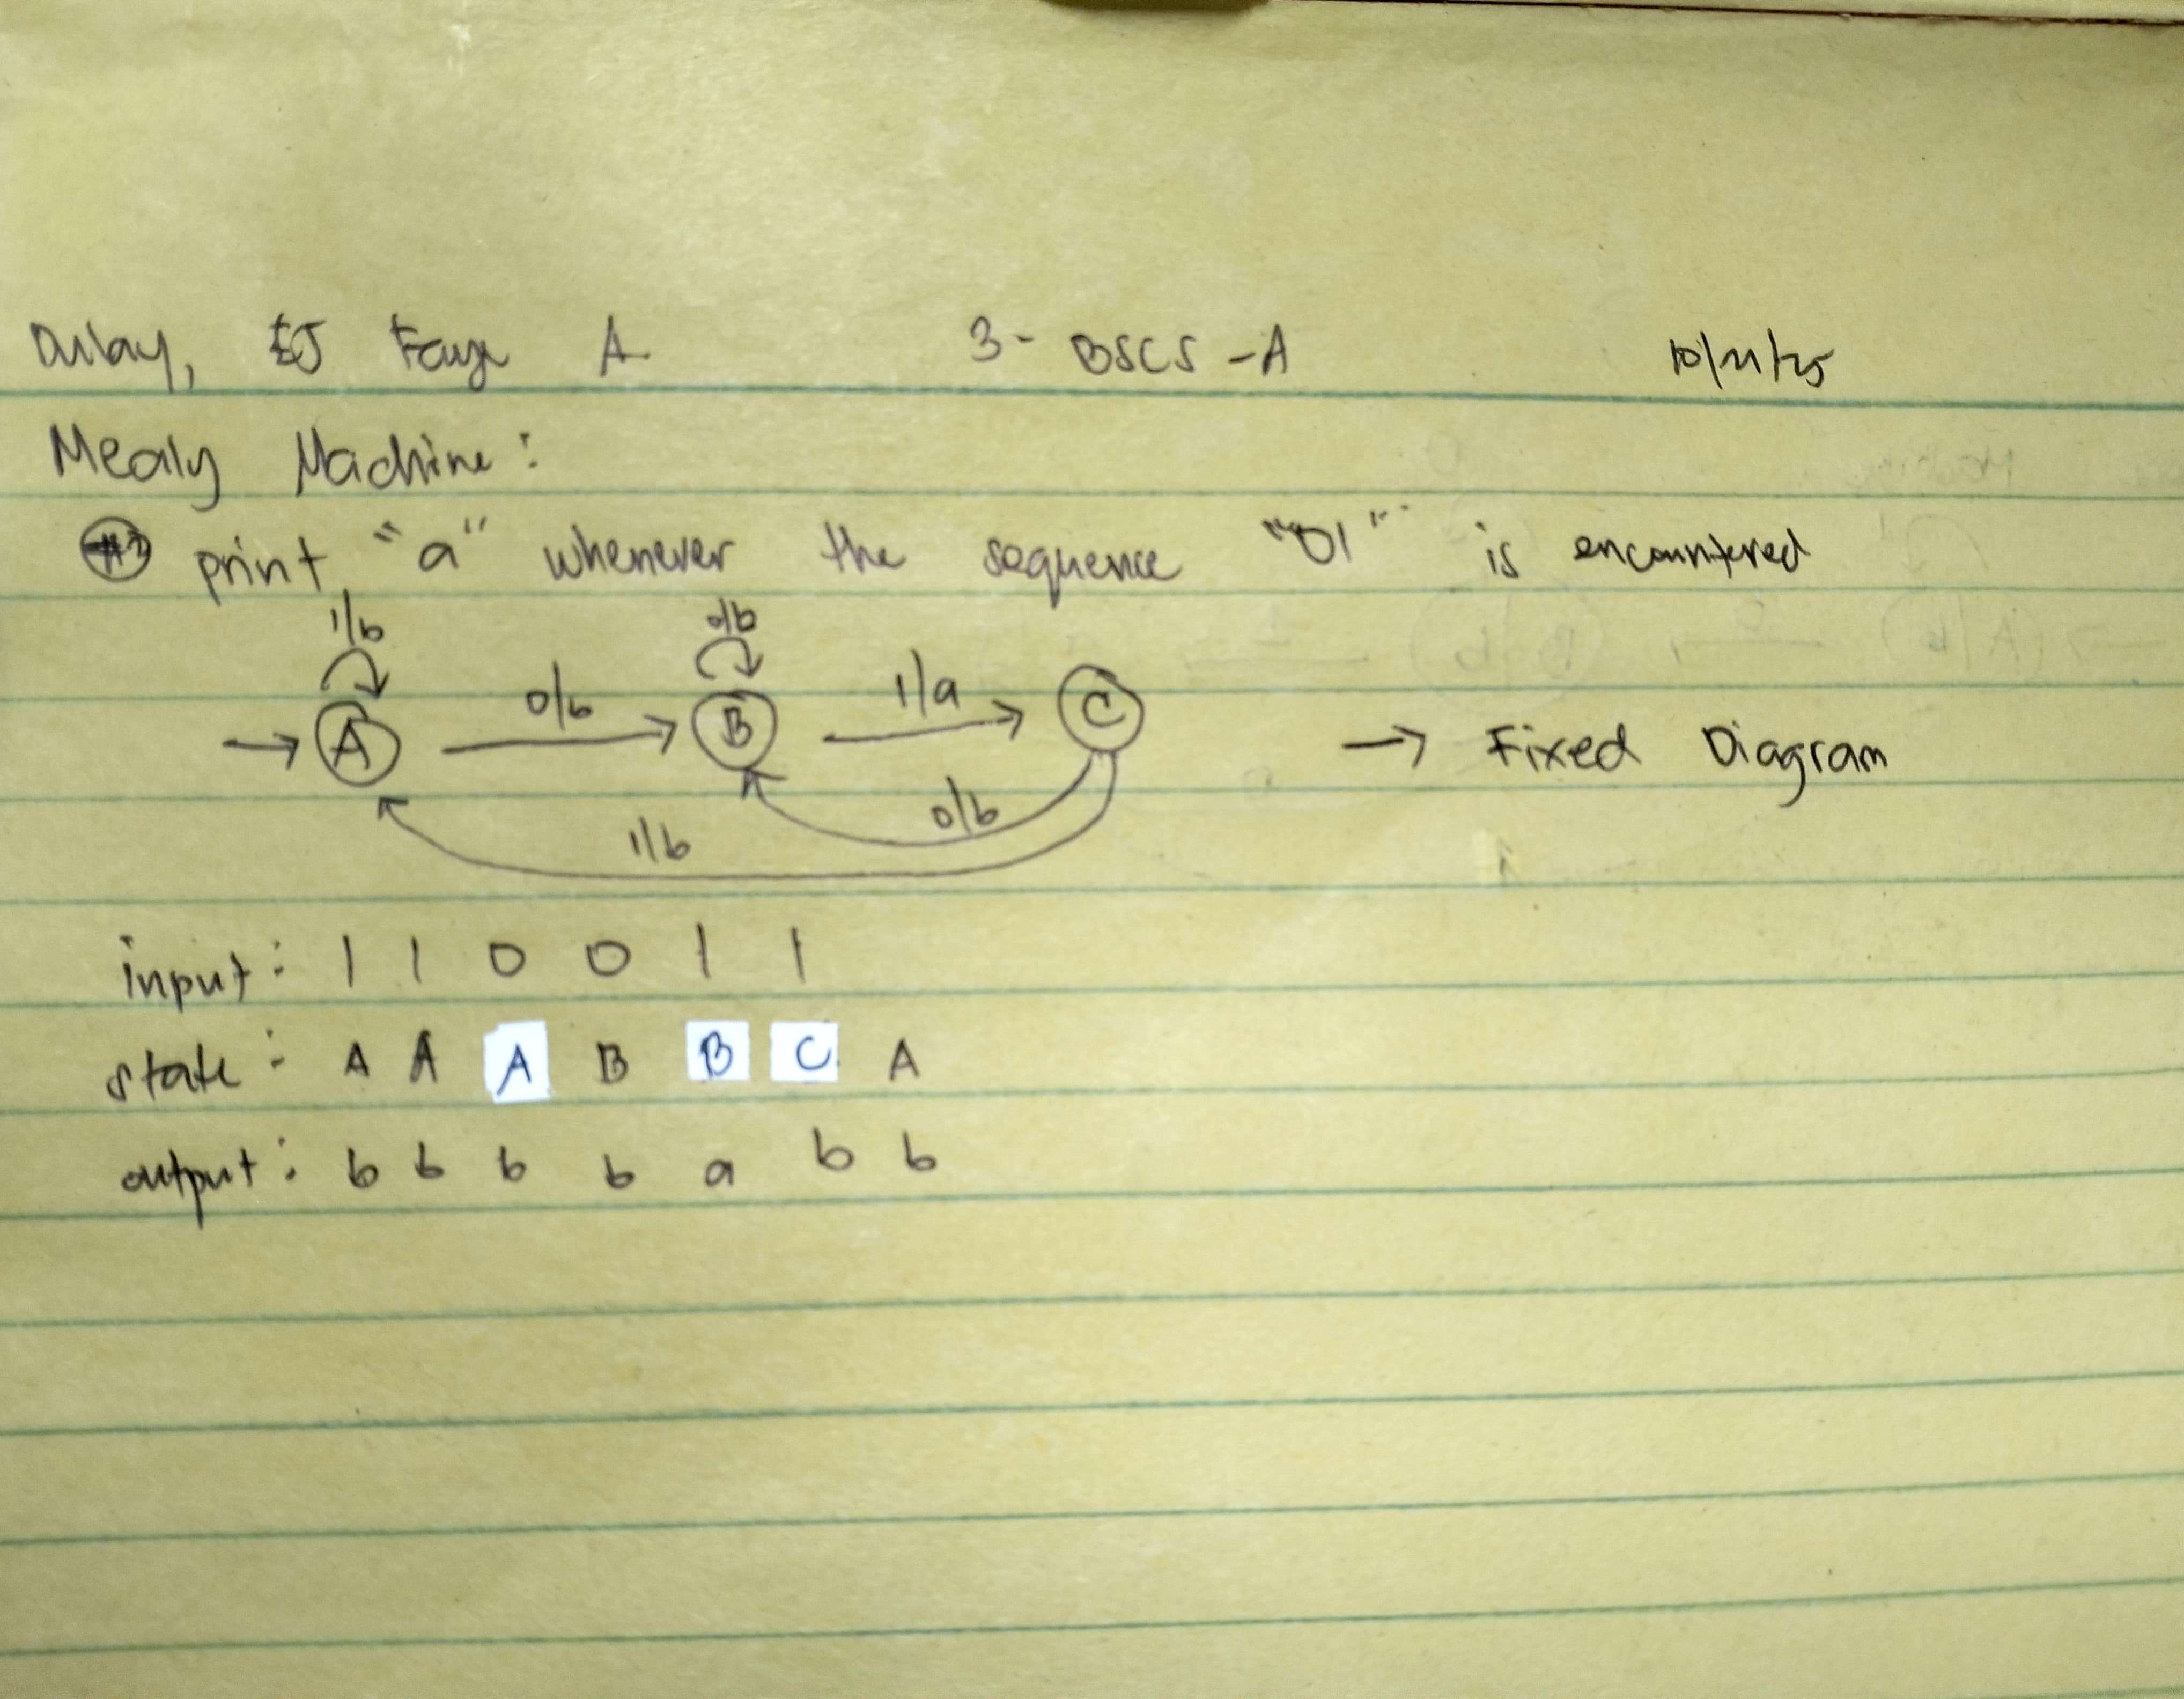 EJ Faye A. 3-BSCS-A
Mealy Machine:
print "a" whenever the sequence "01" is encountered
1/b 0/b
0/b 1/a
→ A B C → Fixed Diagram
0/b
1/b
input: 1 1 0 0 1 1
state: A A A B B C A
output: b b b b a b b